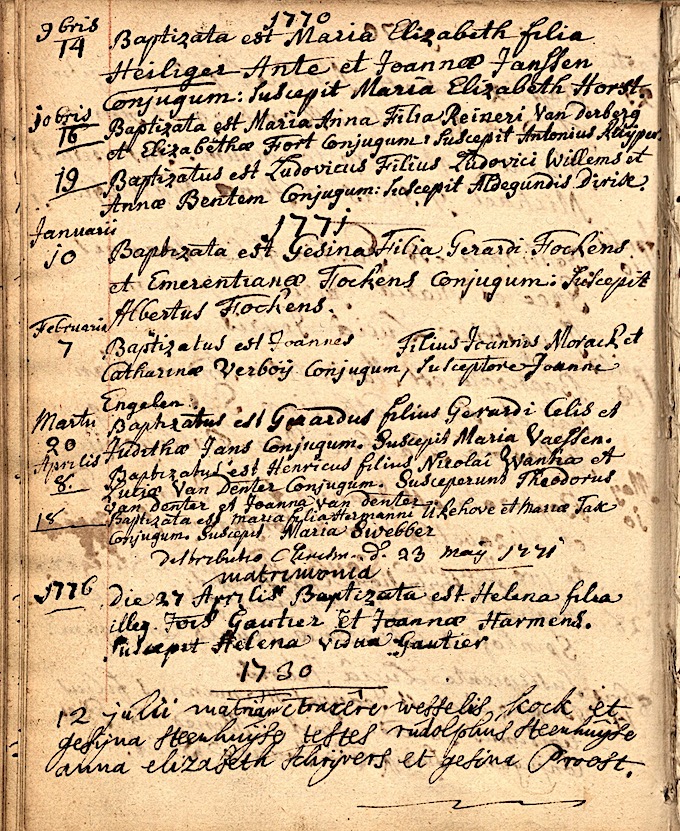 1770
9bris
14 Baptizata est Maria Elizabeth filia
Heiliger Ante et Joannæ Janssen
Conjugum: Suscepit Maria Elizabeth Horst
10bris
16 Baptizata est Maria Anna Filia Reineri Van derberg
et Elizabethæ Fort Conjugum: Suscepit Antonius Kuyper.
19 Baptizatus est Ludovicus Filius Ludovici Willems et
Annæ Bentem Conjugum: Suscepit Aldegundis Dirisk.
1771
Januarii
10 Baptizata est Gesina Filia Gerardi Fockens
et Emerentianæ Fockens Conjugum: Suscepit
Albertus Fockens.
Februarii
7 Baptizatus est Joannes Filius Joannis Morack et
Catharinæ Verboÿ Conjugum, Susceptore Joanni
Engelen
Martii
20 Baptizatus est Gerardus filius Gerardi Celis et
Judithæ Jans Conjugum. Suscepit Maria Vaessen.
Aprilis
8. Baptizatus est Henricus filius Nicolai et
Luciæ Van Denter Conjugum. Susceperunt Theodorus
Van denter et Joanna van denter
18 Baptizata est maria filia Hermanni Ukehove et Mariæ Tak
Conjugum. Suscepit Maria Swebber
distributio d. 23 maÿ 1771
matrimonia
1776 Die 27 Aprilis Baptizata est Helena filia
illeg. Jois Gautier et Joannæ Harmens.
Suscepit Helena vidua Gautier
1730
12 julii matrim ctraxêre wesselis kock et
gesijna steenhuijse testes rudolphus steenhuijse
anna elizabeth schrijvers et gesina Proost.